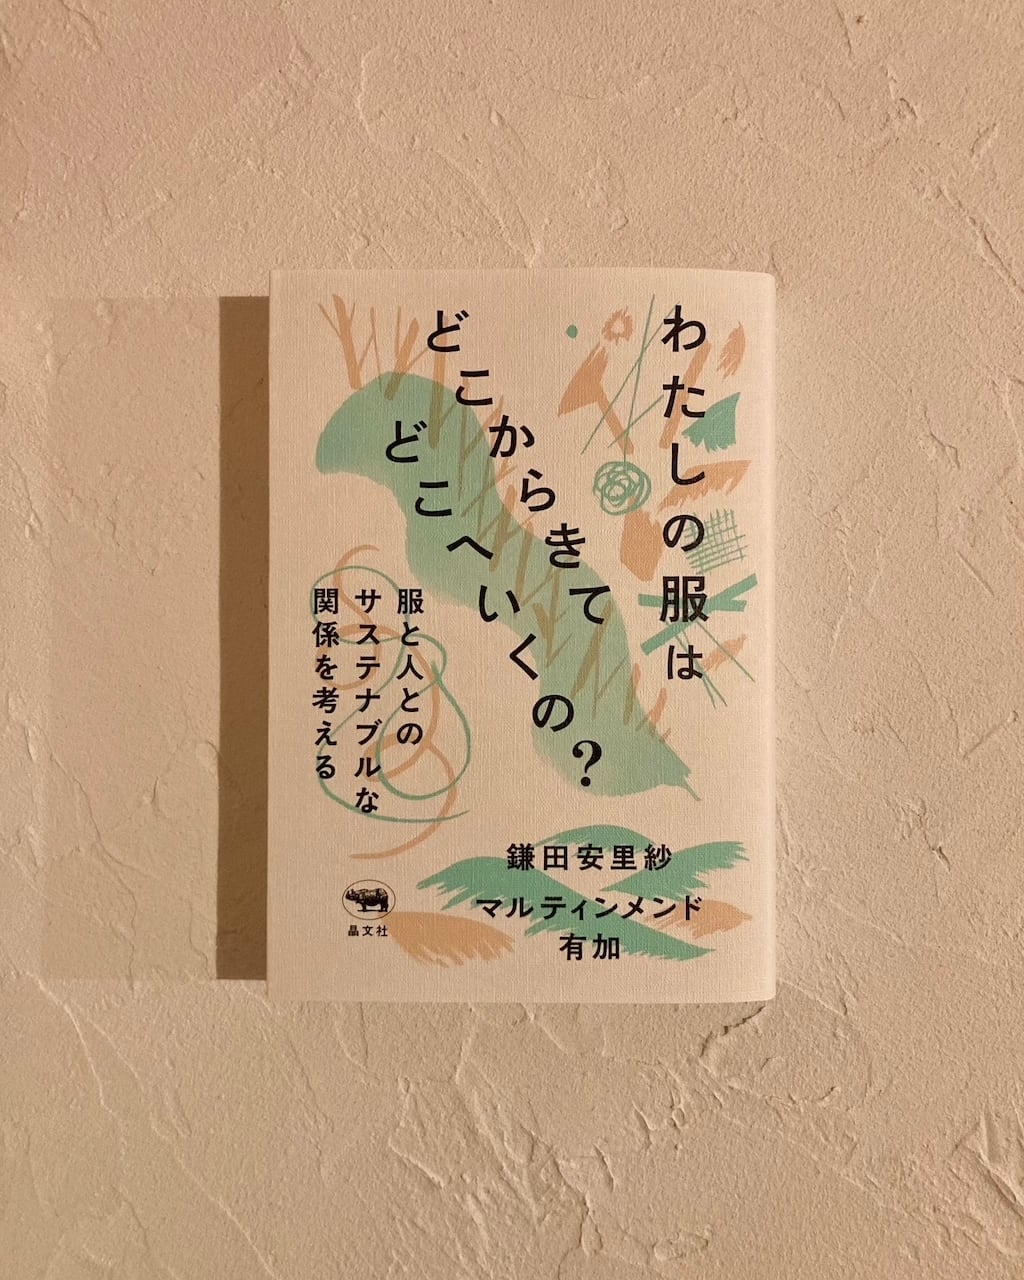 わたしの服は
どこからきて
どこへいくの？
服と人との
サステナブルな
関係を考える
鎌田安里紗
マルティンメンド
有加
晶文社